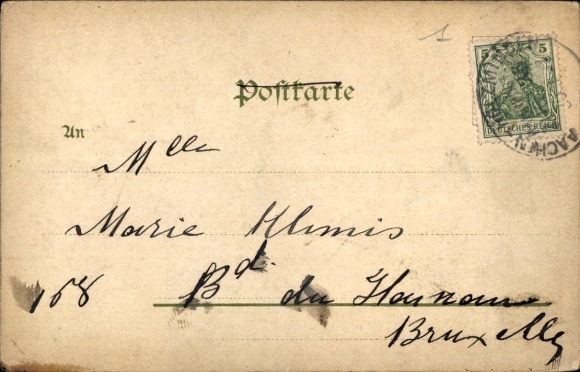 1
Postkarte
5 5
DEUTSCHES REICH
AACHEN
An
Mlle
Marie Klimis
168 Bd. du Hainaut
Bruxelles